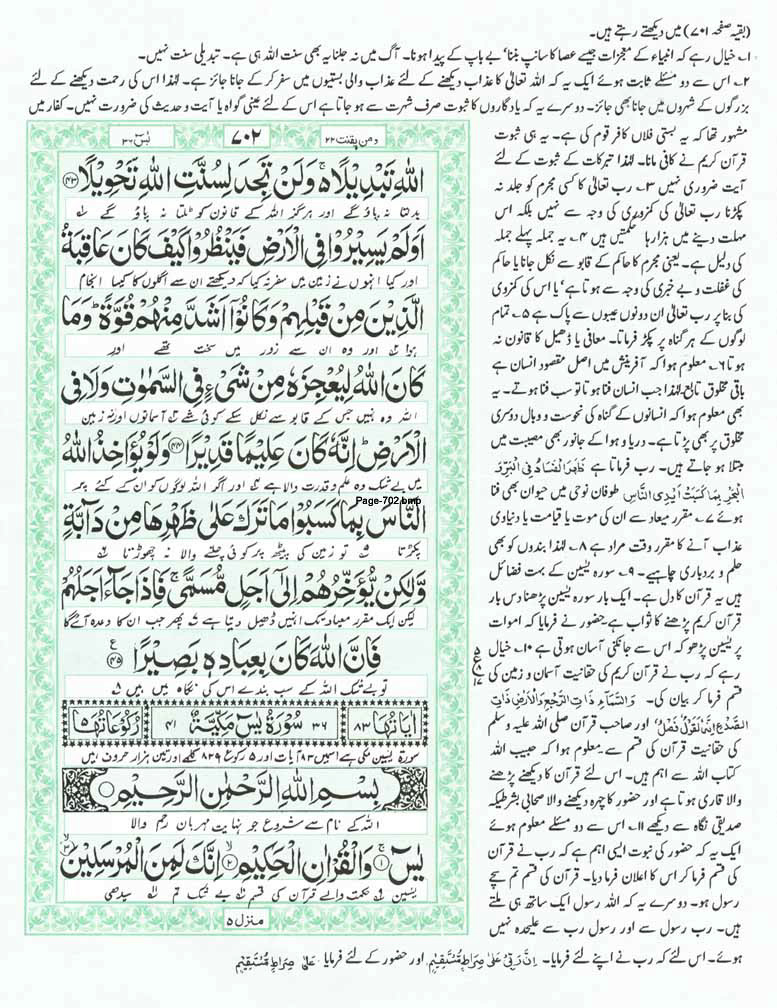 (بقیہ صفحہ ۷۰۱) میں دیکھتے رہتے ہیں۔
۱۔ خیال رہے کہ انبیاء کے معجزات جیسے عصا کا سانپ بننا' بے باپ کے پیدا ہونا۔ آگ میں نہ جلنا یہ بھی سنت اللہ ہی ہے۔ تبدیلی سنت نہیں۔
۲۔ اس سے دو مسئلے ثابت ہوئے ایک یہ کہ اللہ تعالیٰ کا عذاب دیکھنے کے لئے عذاب والی بستیوں میں سفر کر کے جانا جائز ہے۔ لہٰذا اس کی رحمت دیکھنے کے لئے
بزرگوں کے شہروں میں جانا بھی جائز۔ دوسرے یہ کہ یادگاروں کا ثبوت صرف شہرت سے ہو جاتا ہے اس کے لئے عینی گواہ یا آیت و حدیث کی ضرورت نہیں۔ کفار میں
مشہور تھا کہ یہ بستی فلاں کافر قوم کی ہے۔ یہ ہی ثبوت
قرآن کریم نے کافی مانا۔ لہٰذا تبرکات کے ثبوت کے لئے
آیت ضروری نہیں ۳۔ رب تعالیٰ کا کسی مجرم کو جلد نہ
پکڑنا رب تعالیٰ کی کمزوری کی وجہ سے نہیں بلکہ اس
مہلت دینے میں ہزارہا حکمتیں ہیں ۴۔ یہ جملہ پہلے جملہ
کی دلیل ہے۔ یعنی مجرم کا حاکم کے قابو سے نکل جانا یا حاکم
کی غفلت و بے خبری کی وجہ سے ہوتا ہے' یا اس کی کمزوری
کی بنا پر رب تعالیٰ ان دونوں عیبوں سے پاک ہے ۵۔ تمام
لوگوں کے ہر گناہ پر پکڑ فرماتا۔ معافی یا ڈھیل کا قانون نہ
ہوتا ۶۔ معلوم ہوا کہ آفرینش میں اصل مقصود انسان ہے
باقی مخلوق تابع لہٰذا جب انسان فنا ہوتا تو سب فنا ہوتے۔ یہ
بھی معلوم ہوا کہ انسانوں کے گناہ کی نحوست و وبال دوسری
مخلوق پر بھی پڑتا ہے۔ دریا و ہوا کے جانور بھی مصیبت میں
مبتلا ہو جاتے ہیں۔ رب فرماتا ہے ظَهَرَ الْفَسَادُ فِی الْبَرِّ وَ
الْبَحْرِ بِمَا كَسَبَتْ اَیْدِی النَّاسِ طوفان نوحی میں حیوان بھی فنا
ہوئے ۷۔ مقرر میعاد سے ان کی موت یا قیامت یا دنیاوی
عذاب آنے کا مقرر وقت مراد ہے ۸۔ لہٰذا بندوں کو بھی
حلم و بردباری چاہیے۔ ۹۔ سورہ یٰسین کے بہت فضائل
ہیں یہ قرآن کا دل ہے۔ ایک بار سورہ یٰسین پڑھنا دس بار
قرآن کریم پڑھنے کا ثواب ہے حضور نے فرمایا کہ اموات
پر یٰسین پڑھو کہ اس سے جانکنی آسان ہوتی ہے ۱۰۔ خیال
رہے کہ رب نے قرآن کریم کی حقانیت آسمان و زمین کی
قسم فرما کر بیان کی۔ وَالسَّمَآءِ ذَاتِ الرَّجْعِ وَالْاَرْضِ ذَاتِ
الصَّدْعِ اِنَّهٗ لَقَوْلٌ فَصْلٌ اور صاحب قرآن صلی اللہ علیہ وسلم
کی حقانیت قرآن کی قسم سے معلوم ہوا کہ حبیب اللہ
کتاب اللہ سے اہم ہیں۔ اس لئے قرآن کا دیکھنے پڑھنے
والا قاری ہوتا ہے اور حضور کا چہرہ دیکھنے والا صحابی بشرطیکہ
صدیقی نگاہ سے دیکھے ۱۱۔ اس سے دو مسئلے معلوم ہوئے
ایک یہ کہ حضور کی نبوت ایسی اہم ہے کہ رب نے قرآن
کی قسم فرما کر اس کا اعلان فرما دیا۔ قرآن کی قسم تم سچے
رسول ہو۔ دوسرے یہ کہ اللہ رسول ایک ساتھ ہی ملتے
ہیں۔ رب رسول سے اور رسول رب سے علیحدہ نہیں
ہوئے۔ اس لئے کہ رب نے اپنے لئے فرمایا۔ اِنَّ رَبِّیْ عَلٰی صِرَاطٍ مُّسْتَقِیْمٍ اور حضور کے لئے فرمایا عَلٰی صِرَاطٍ مُّسْتَقِیْمٍ
ومن یقنت ۲۲
۷۰۲
یٰسٓ ۳۶
اللّٰهِ تَبْدِیْلًا ۚ وَلَنْ تَجِدَ لِسُنَّتِ اللّٰهِ تَحْوِیْلًا ﴿۴۳﴾
بدلتا نہ پاؤ گے اور ہرگز اللہ کے قانون کو ٹلتا نہ پاؤ گے
اَوَلَمْ یَسِیْرُوْا فِی الْاَرْضِ فَیَنْظُرُوْا كَیْفَ كَانَ عَاقِبَةُ
اور کیا انہوں نے زمین میں سفر نہ کیا کہ دیکھتے ان سے اگلوں کا کیسا انجام
الَّذِیْنَ مِنْ قَبْلِهِمْ وَكَانُوْۤا اَشَدَّ مِنْهُمْ قُوَّةً ؕ وَمَا
ہوا اور وہ ان سے زور میں سخت تھے اور
كَانَ اللّٰهُ لِیُعْجِزَهٗ مِنْ شَیْءٍ فِی السَّمٰوٰتِ وَلَا فِی
اللہ وہ نہیں جس کے قابو سے نکل سکے کوئی شے آسمانوں اور نہ زمین
الْاَرْضِ ؕ اِنَّهٗ كَانَ عَلِیْمًا قَدِیْرًا ﴿۴۴﴾ وَلَوْ یُؤَاخِذُ اللّٰهُ
میں بے شک وہ علم و قدرت والا ہے اور اگر اللہ لوگوں کو ان کے کئے پر
Page-702.bmp
النَّاسَ بِمَا كَسَبُوْا مَا تَرَكَ عَلٰی ظَهْرِهَا مِنْ دَآبَّةٍ
پکڑتا تو زمین کی پیٹھ پر کوئی چلنے والا نہ چھوڑتا
وَّلٰكِنْ یُّؤَخِّرُهُمْ اِلٰۤی اَجَلٍ مُّسَمًّی ۚ فَاِذَا جَآءَ اَجَلُهُمْ
لیکن ایک مقرر میعاد تک انہیں ڈھیل دیتا ہے پھر جب ان کا وعدہ آئے گا
فَاِنَّ اللّٰهَ كَانَ بِعِبَادِهٖ بَصِیْرًا ﴿۴۵﴾
تو بے شک اللہ کے سب بندے اس کی نگاہ میں ہیں
اٰیَاتُهَا ۸۳ ۳۶ سُوْرَةُ یٰسٓ مَكِّیَّةٌ ۴۱ رُكُوْعَاتُهَا ۵
سورۃ یٰسین مکی ہے اسمیں ۸۳ آیات اور ۵ رکوع ۸۲۹ کلمے اور تین ہزار حروف ہیں
بِسْمِ اللّٰهِ الرَّحْمٰنِ الرَّحِیْمِ
اللہ کے نام سے شروع جو نہایت مہربان رحم والا
یٰسٓ ﴿۱﴾ وَالْقُرْاٰنِ الْحَكِیْمِ ﴿۲﴾ اِنَّكَ لَمِنَ الْمُرْسَلِیْنَ ﴿۳﴾
یٰسین حکمت والے قرآن کی قسم بے شک تم سیدھی
منزل ۵